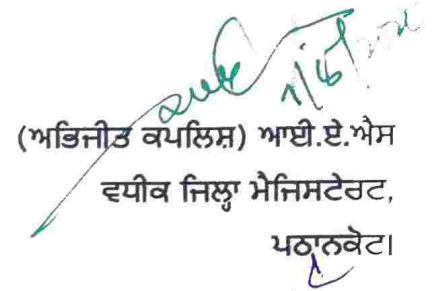 (ਅਭਿਜੀਤ ਕਪਲਿਸ਼) ਆਈ.ਏ.ਐਸ
ਵਧੀਕ ਜਿਲ੍ਹਾ ਮੈਜਿਸਟੇਰਟ,
ਪਠਾਨਕੋਟ।